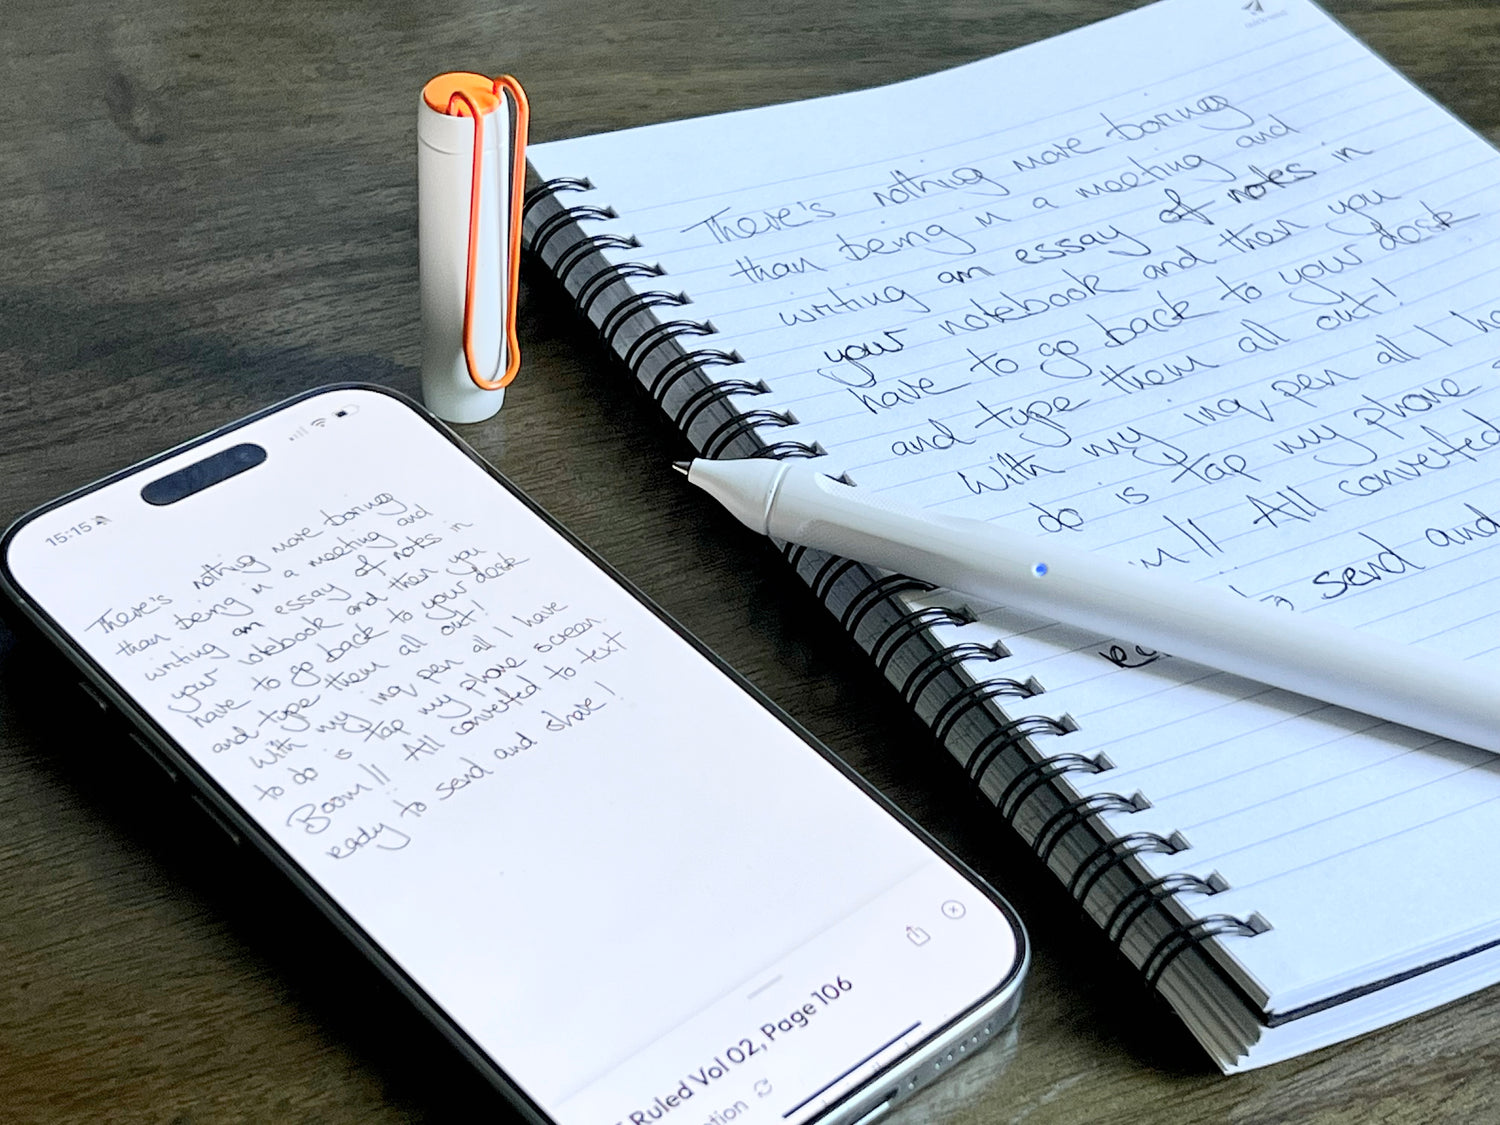 There's nothing more boring
than being in a meeting and
writing an essay of notes in
your notebook and then you
have to go back to your desk
and type them all out!
With my inq pen all I ha
do is tap my phone s
m!! All converted
send and
15:15
There's nothing more boring
than being in a meeting and
writing an essay of notes in
your notebook and then you
have to go back to your desk
and type them all out!
With my inq pen all I have
to do is tap my phone screen.
Boom!! All converted to text
ready to send and share!
Ruled Vol 02, Page 106
tion